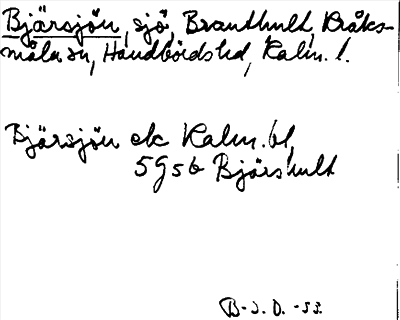 Bjärsjön, sjö, Branthult, Kråks-
måla sn, Handbörds hd, Kalm. l.
Bjärsjön ek Kalm. bl,
5956 Bjärshult
B-J. D. -53.